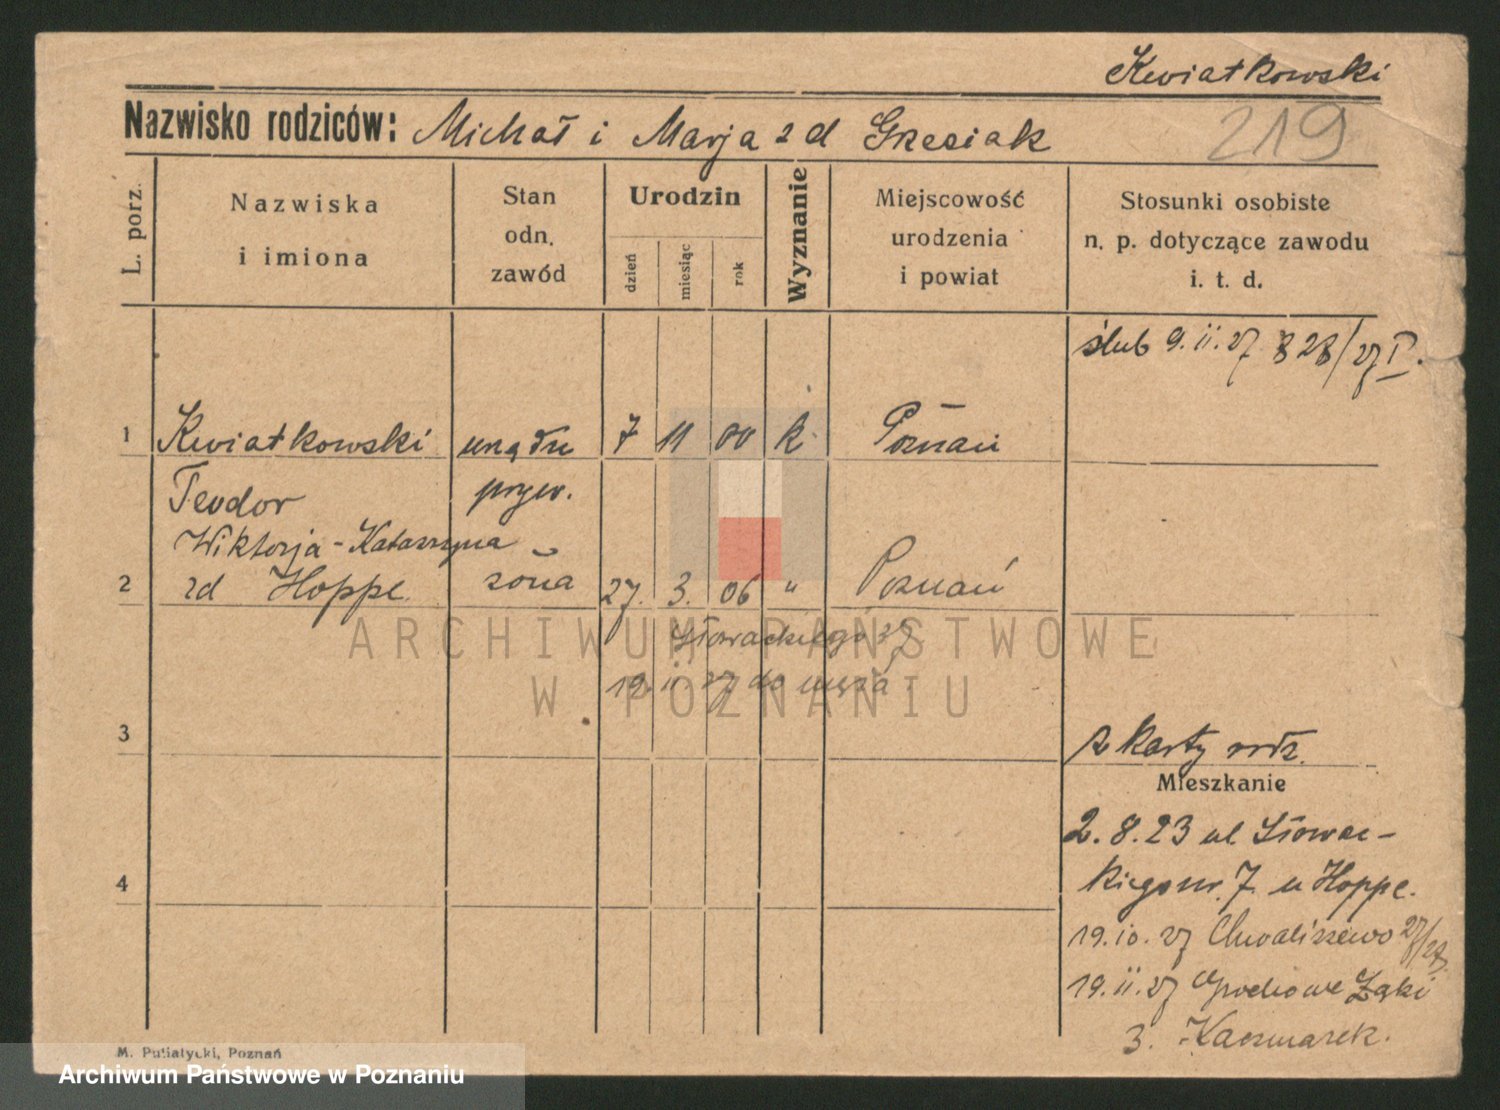 Kwiatkowski
Nazwisko rodziców: Michał i Marja zd Grzesiak
219
L. porz.
Nazwiska i imiona
Stan odn. zawód
Urodzin
dzień
miesiąc
rok
Wyznanie
Miejscowość urodzenia i powiat
Stosunki osobiste n. p. dotyczące zawodu i. t. d.
ślub 9. ii. 27. 828/27 I.
1 Kwiatkowski urzędn 7 11 00 k. Poznań
Teodor pryw.
Wiktorja-Katarzyna
2 zd Hoppe żona 27. 3. 06 " Poznań
Słowackiego
19. ii. 27 do męża
3
z karty rodz.
Mieszkanie
2.8.23 ul Słowac-
kiego nr. 7. u Hoppe.
4
19.10.27 Chwaliszewo
19.ii.27
3. Kaczmarek.
M. Putiatycki, Poznań
ARCHIWUM PAŃSTWOWE
W POZNANIU
Archiwum Państwowe w Poznaniu